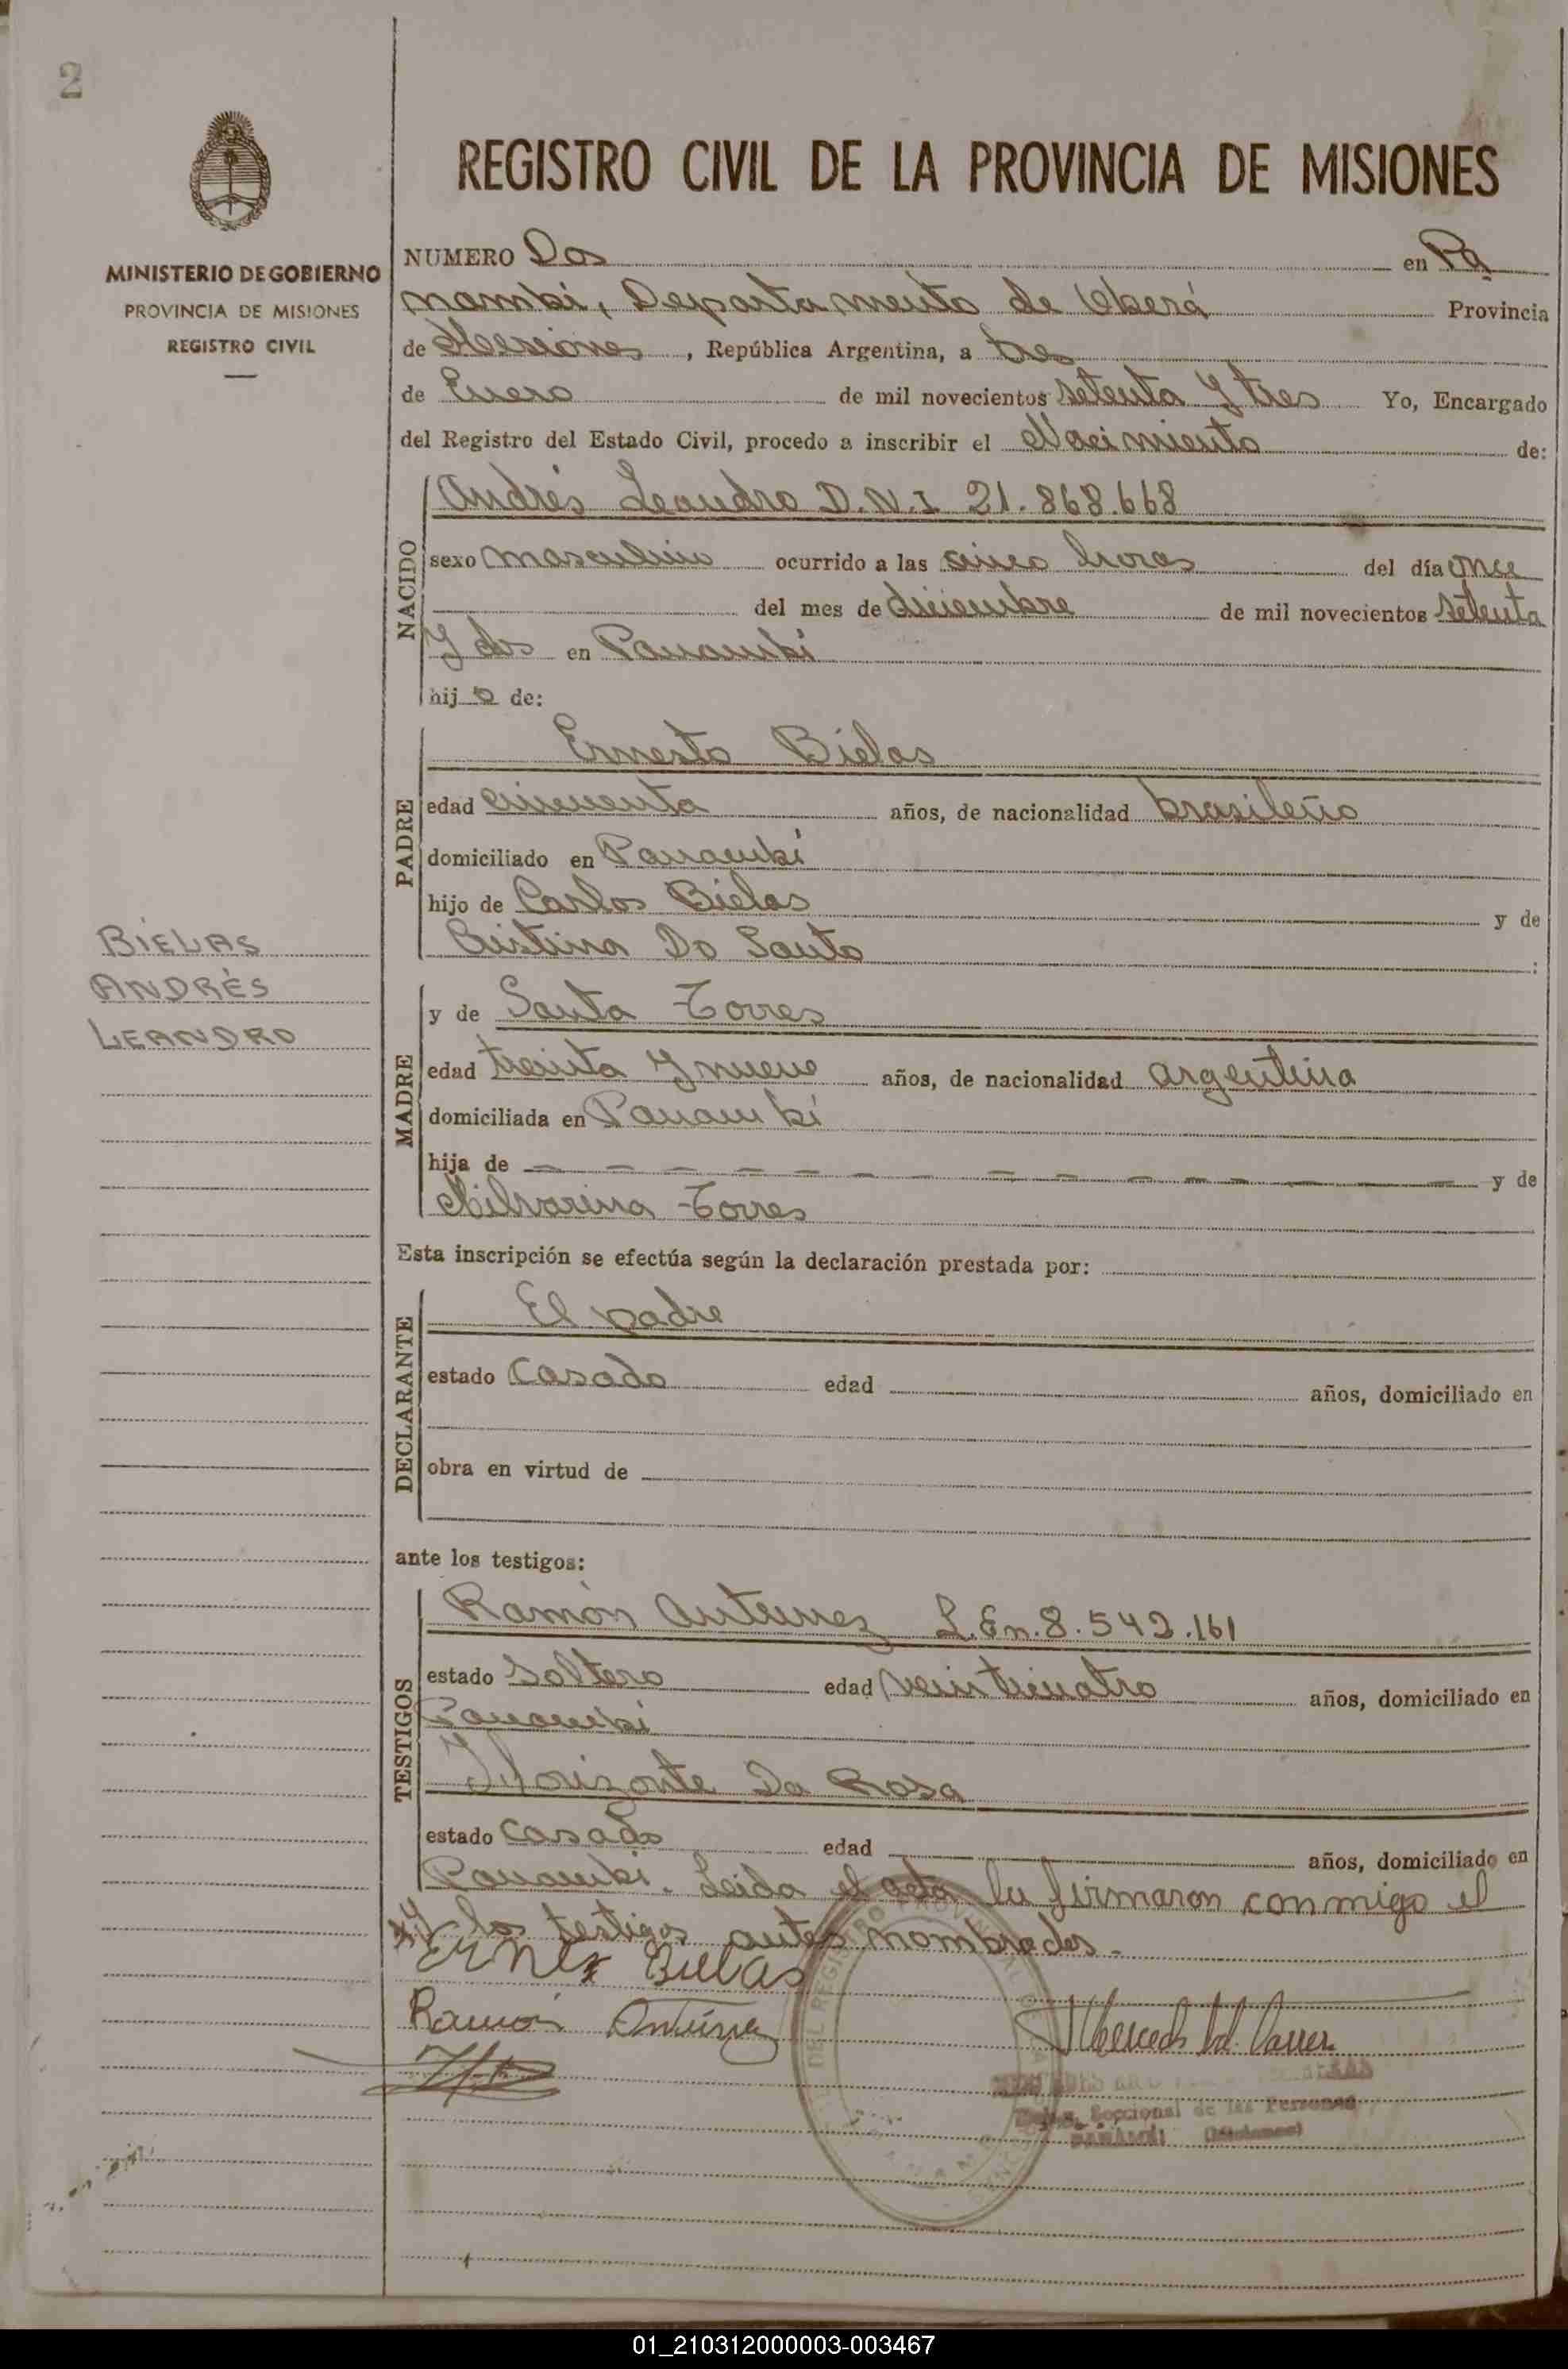 2
MINISTERIO DE GOBIERNO
PROVINCIA DE MISIONES
REGISTRO CIVIL
BIELAS
ANDRÉS
LEANDRO
REGISTRO CIVIL DE LA PROVINCIA DE MISIONES
NUMERO Dos en Pa
nambí, Departamento de Oberá Provincia
de Misiones, República Argentina, a tres
de Enero de mil novecientos setenta y tres Yo, Encargado
del Registro del Estado Civil, procedo a inscribir el Nacimiento de:
NACIDO
Andrés Leandro D.N.I 21.868.668
sexo masculino ocurrido a las cinco horas del día once
del mes de diciembre de mil novecientos setenta
y dos en Panambí
hijo de:
PADRE
Ernesto Bielas
edad cincuenta años, de nacionalidad brasileño
domiciliado en Panambí
hijo de Carlos Bielas y de
Cristina Do Santo :
MADRE
y de Santa Torres
edad treinta y nueve años, de nacionalidad argentina
domiciliada en Panambí
hija de — — — — — — — — — — — — — — y de
Torres
Esta inscripción se efectúa según la declaración prestada por:
DECLARANTE
El padre
estado casado edad años, domiciliado en
obra en virtud de
ante los testigos:
TESTIGOS
Ramón Antunez L.En.8.542.161
estado soltero edad veinticuatro años, domiciliado en
Panambí
Horizonte Da Rosa
estado casado edad años, domiciliado en
Panambí. Leida el acta la firmaron conmigo el
y los testigos antes nombrados.
Bielas
Ramón Antunez
Seccional de las Personas
PANAMBI (Misiones)
01_210312000003-003467